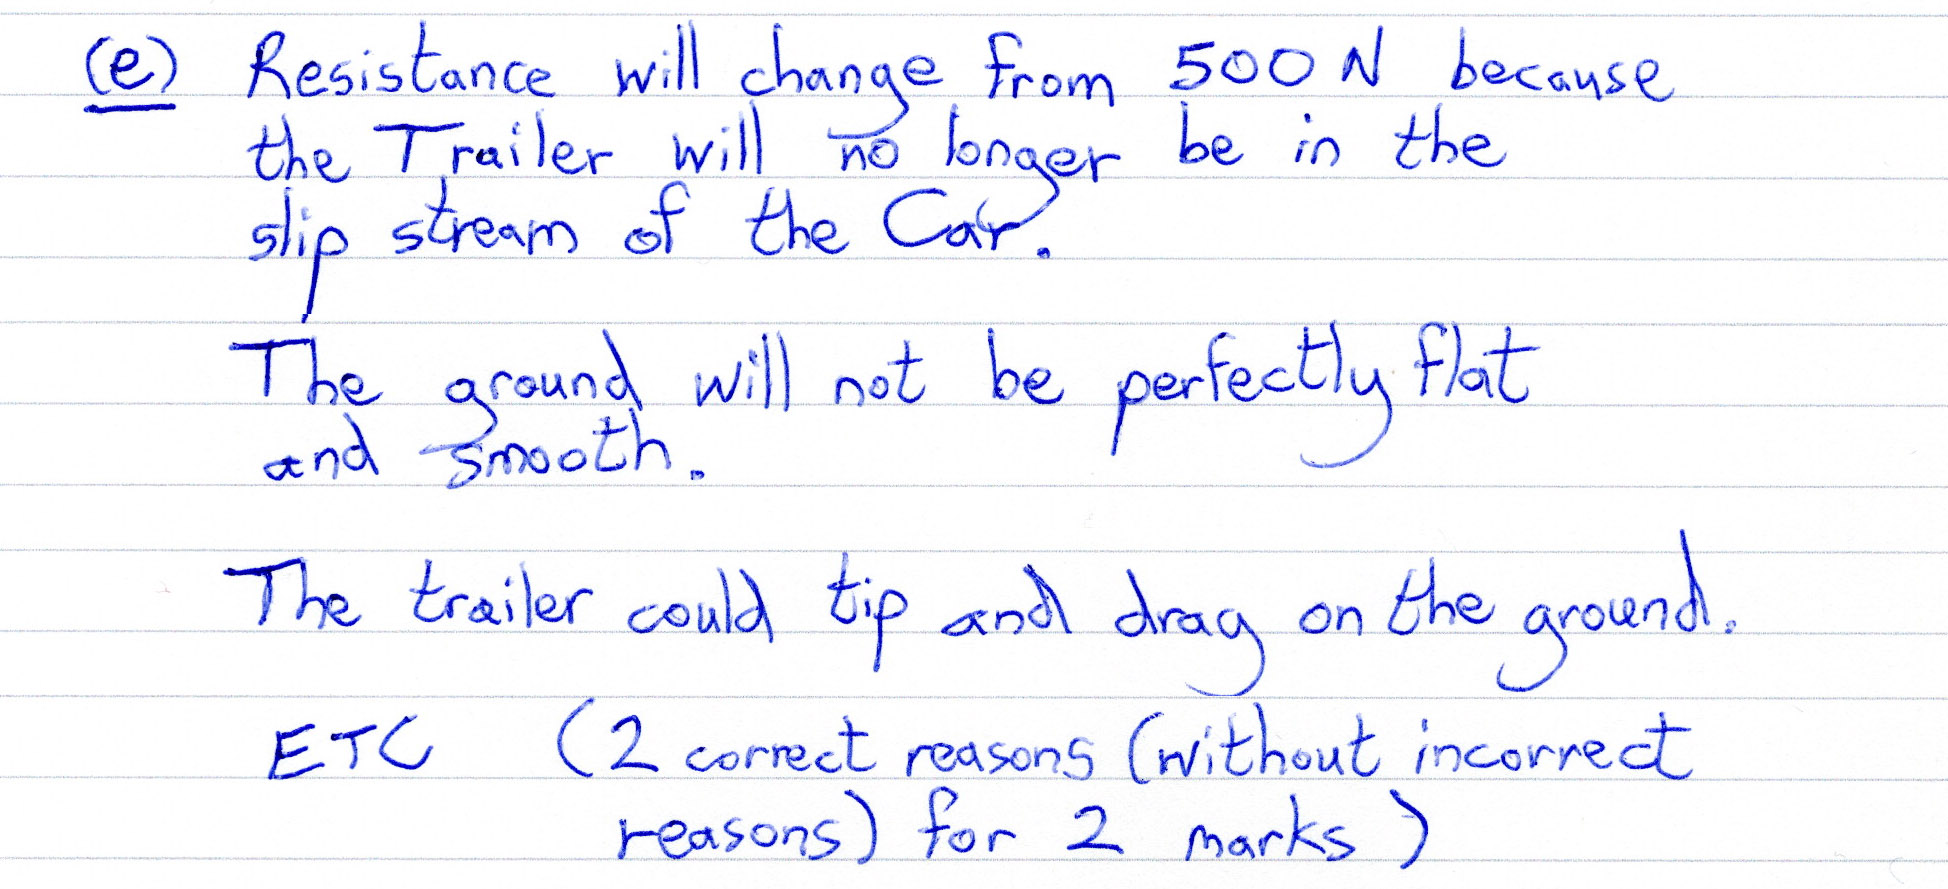 (e) Resistance will change from 500 N because
the Trailer will no longer be in the
slip stream of the Car.
The ground will not be perfectly flat
and smooth.
The trailer could tip and drag on the ground.
ETC (2 correct reasons (without incorrect
reasons) for 2 marks)